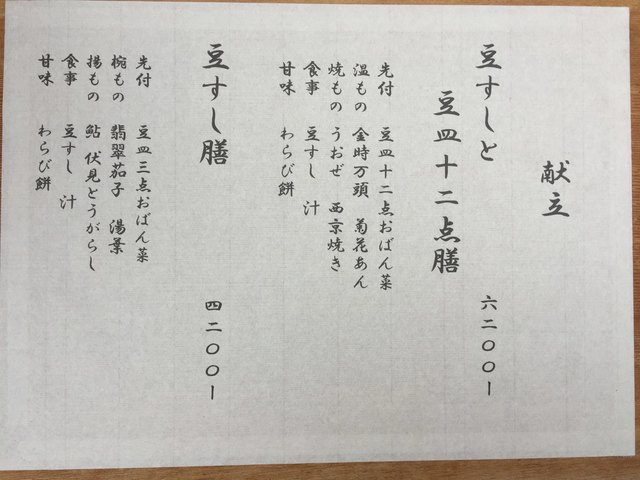 献立
豆すしと
豆皿十二点膳
六二〇〇ー
先付 豆皿十二点おばん菜
温もの 金時万頭 菊花あん
焼もの うおぜ 西京焼き
食事 豆すし 汁
甘味 わらび餅
豆すし膳
四二〇〇ー
先付 豆皿三点おばん菜
椀もの 翡翠茄子 湯葉
揚もの 鮎 伏見とうがらし
食事 豆すし 汁
甘味 わらび餅